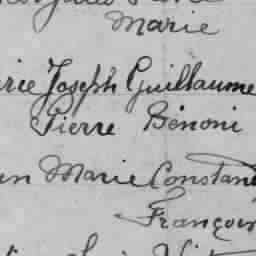 Marie
rie Joseph Guillaume
Pierre Bénoni
Marie Constan
François